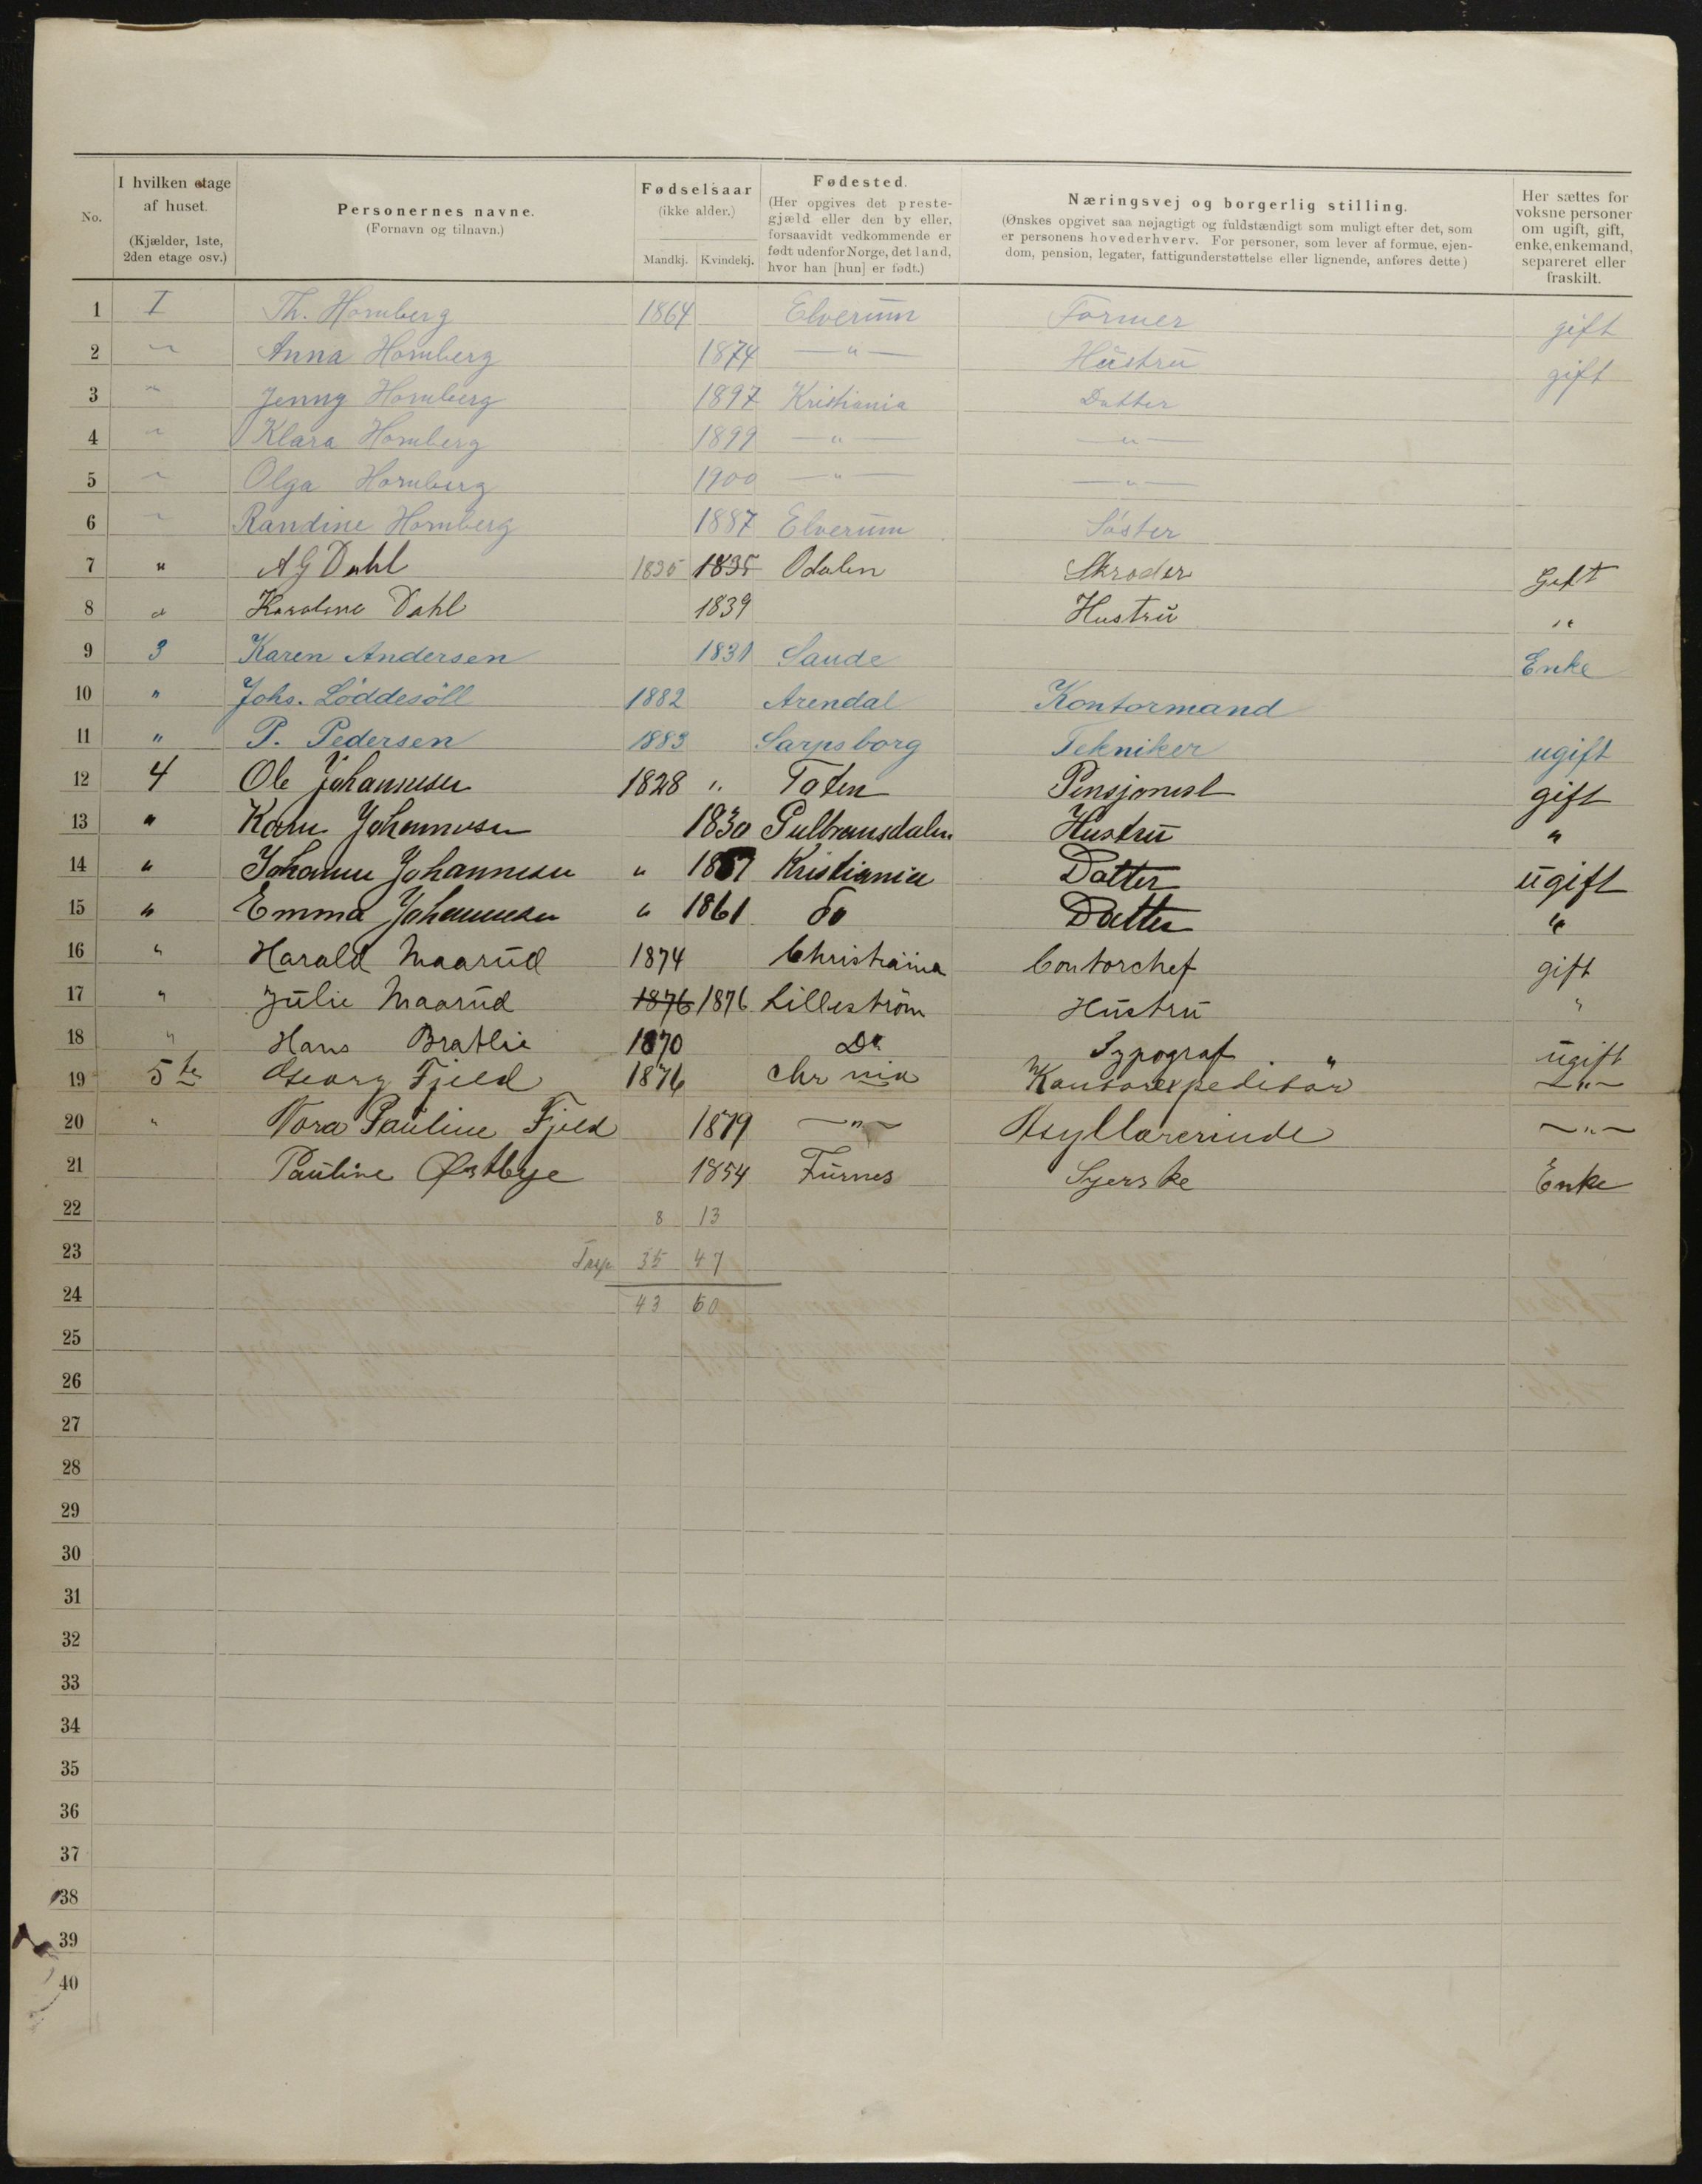 No. | I hvilken etage af huset. (Kjælder, 1ste, 2den etage osv.) | Personernes navne. (Fornavn og tilnavn.) | Fødselsaar (ikke alder.) Mandkj. | Kvindekj. | Fødested. (Her opgives det prestegjæld eller den by eller, forsaavidt vedkommende er født udenfor Norge, det land, hvor han [hun] er født.) | Næringsvej og borgerlig stilling. (Ønskes opgivet saa nøjagtigt og fuldstændigt som muligt efter det, som er personens hovederhverv. For personer, som lever af formue, ejendom, pension, legater, fattigunderstøttelse eller lignende, anføres dette) | Her sættes for voksne personer om ugift, gift, enke, enkemand, separeret eller fraskilt.
1 I Th. Hornberg 1864 Elverum Former gift
2 " Anna Hornberg 1874 —"— Hustru gift
3 " Jenny Hornberg 1897 Kristiania Datter
4 " Klara Hornberg 1899 —"— —"—
5 " Olga Hornberg 1900 —"— —"—
6 " Randine Hornberg 1887 Elverum Søster
7 " A G Dahl 1835 1835 Odalen Skrøder Gift
8 " Karoline Dahl 1839 Hustru "
9 3 Karen Andersen 1831 Saude Enke
10 " Johs. Löddesöll 1882 Arendal Kontormand
11 " P. Pedersen 1883 Sarpsborg Tekniker ugift
12 4 Ole Johannesen 1828 " Toten Pensjonist gift
13 " Karen Johannesen 1830 Gulbransdalen Hustru "
14 " Johanne Johannesen " 1857 Kristiania Datter ugift
15 " Emma Johannesen " 1861 do Datter "
16 " Harald Maarud 1874 Christiania Contorchef gift
17 " Julie Maarud 1876 1876 Lilleström Hustru "
18 " Hans Bratlie 1870 Do Typograf " ugift
19 5te Georg Fjeld 1876 Chr nia Kontorexpeditør —"—
20 " Nora Pauline Fjeld 1879 —"— Asyllærerinde —"—
21 Pauline Østbye 1854 Furnes Syerske Enke
22 8 13
23 Trsp. 35 47
24 43 60
25
26
27
28
29
30
31
32
33
34
35
36
37
38
39
40